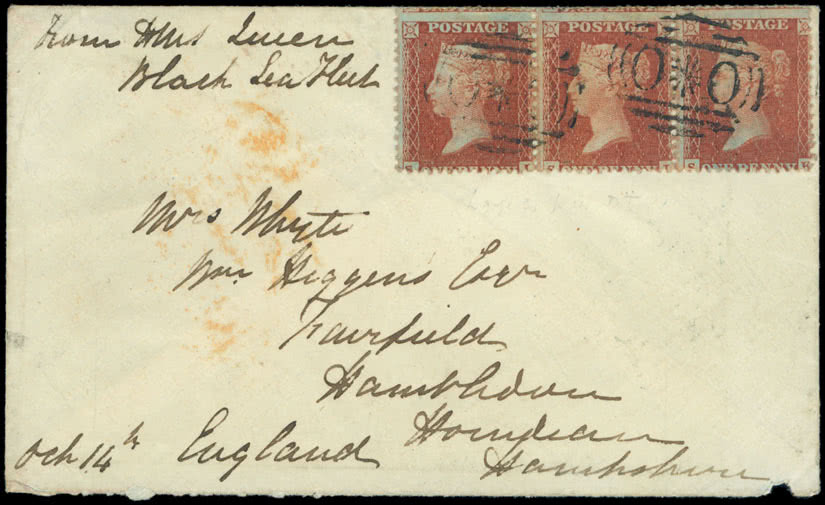 From HMS Queen
Black Sea Fleet
POSTAGE POSTAGE POSTAGE
O*O O*O
S S S E
ONE PENNY
Mrs Whyte
Wm Higgens Esqr
Fairfield
Hambledon
Horndean
Hampshire
Oct 14th England